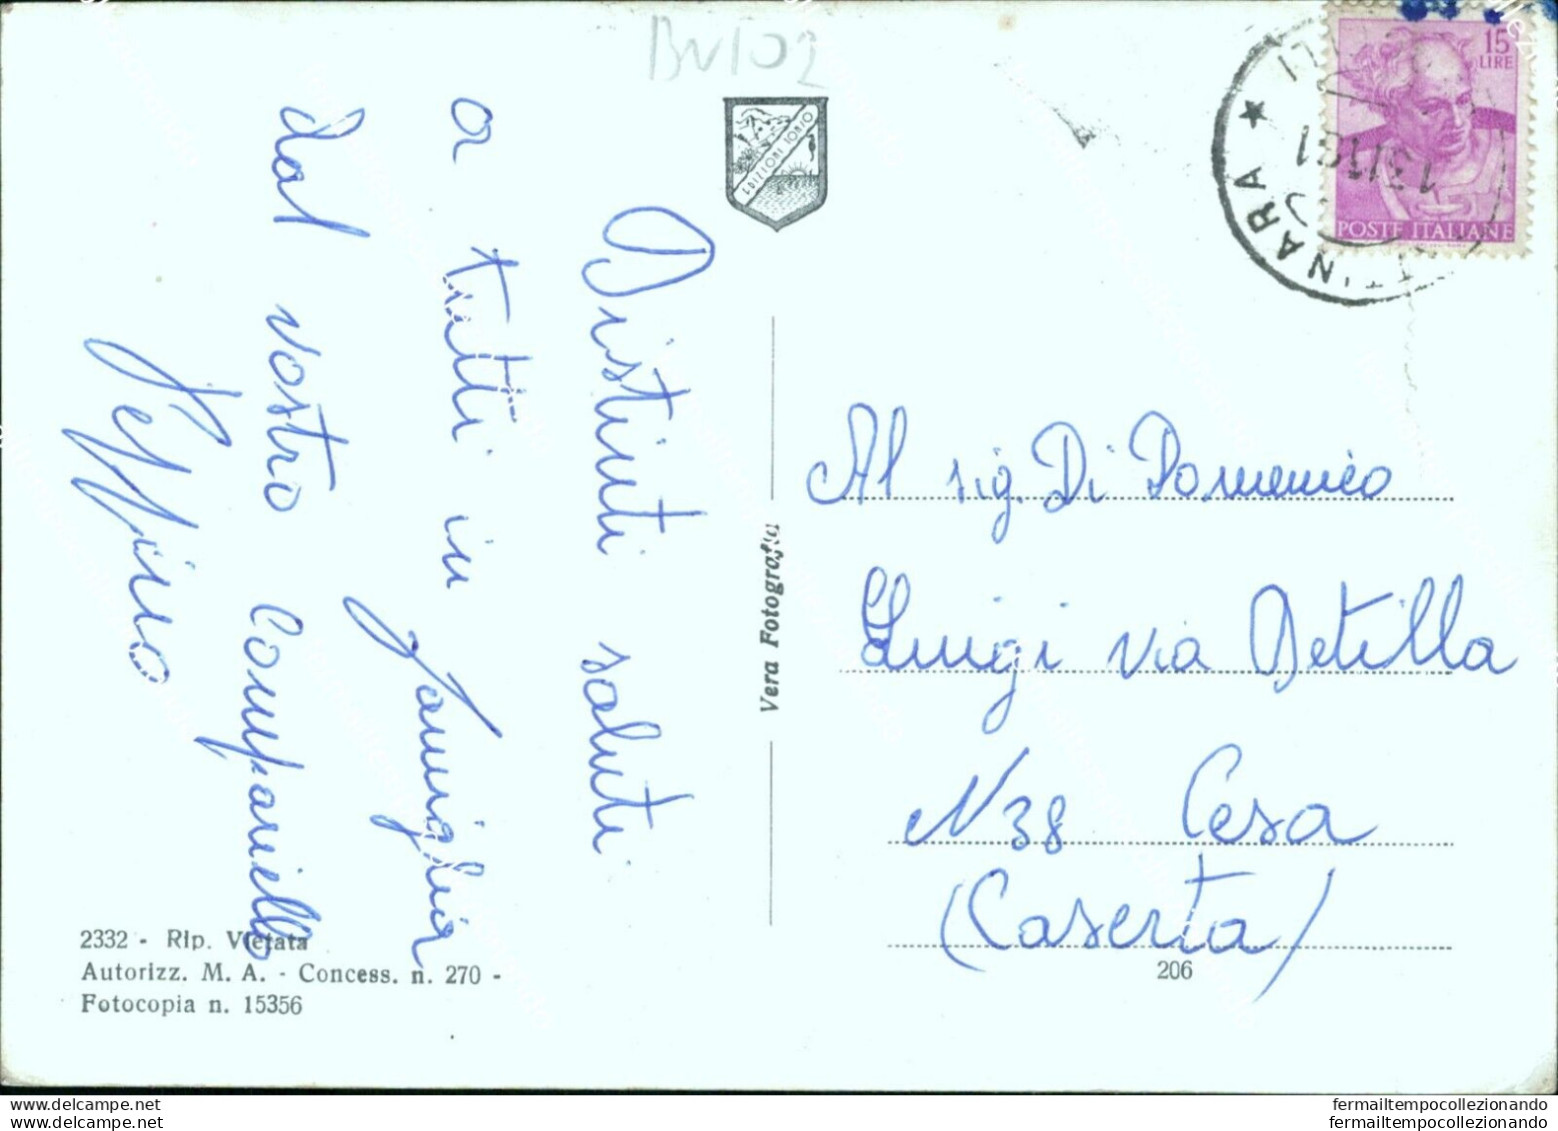 BV102
EDIZIONI IORIO
15
LIRE
POSTE ITALIANE
Distinti saluti
a tutti in famiglia
dal vostro Companiello
Peppino
Vera Fotografia
Al sig. Di Domenico
Luigi via Detilla
N 38 Cesa
(Caserta)
206
2332 - Rip. Vietata
Autorizz. M. A. - Concess. n. 270 -
Fotocopia n. 15356
www.delcampe.net
www.delcampe.net
fermailtempocollezionando
fermailtempocollezionando